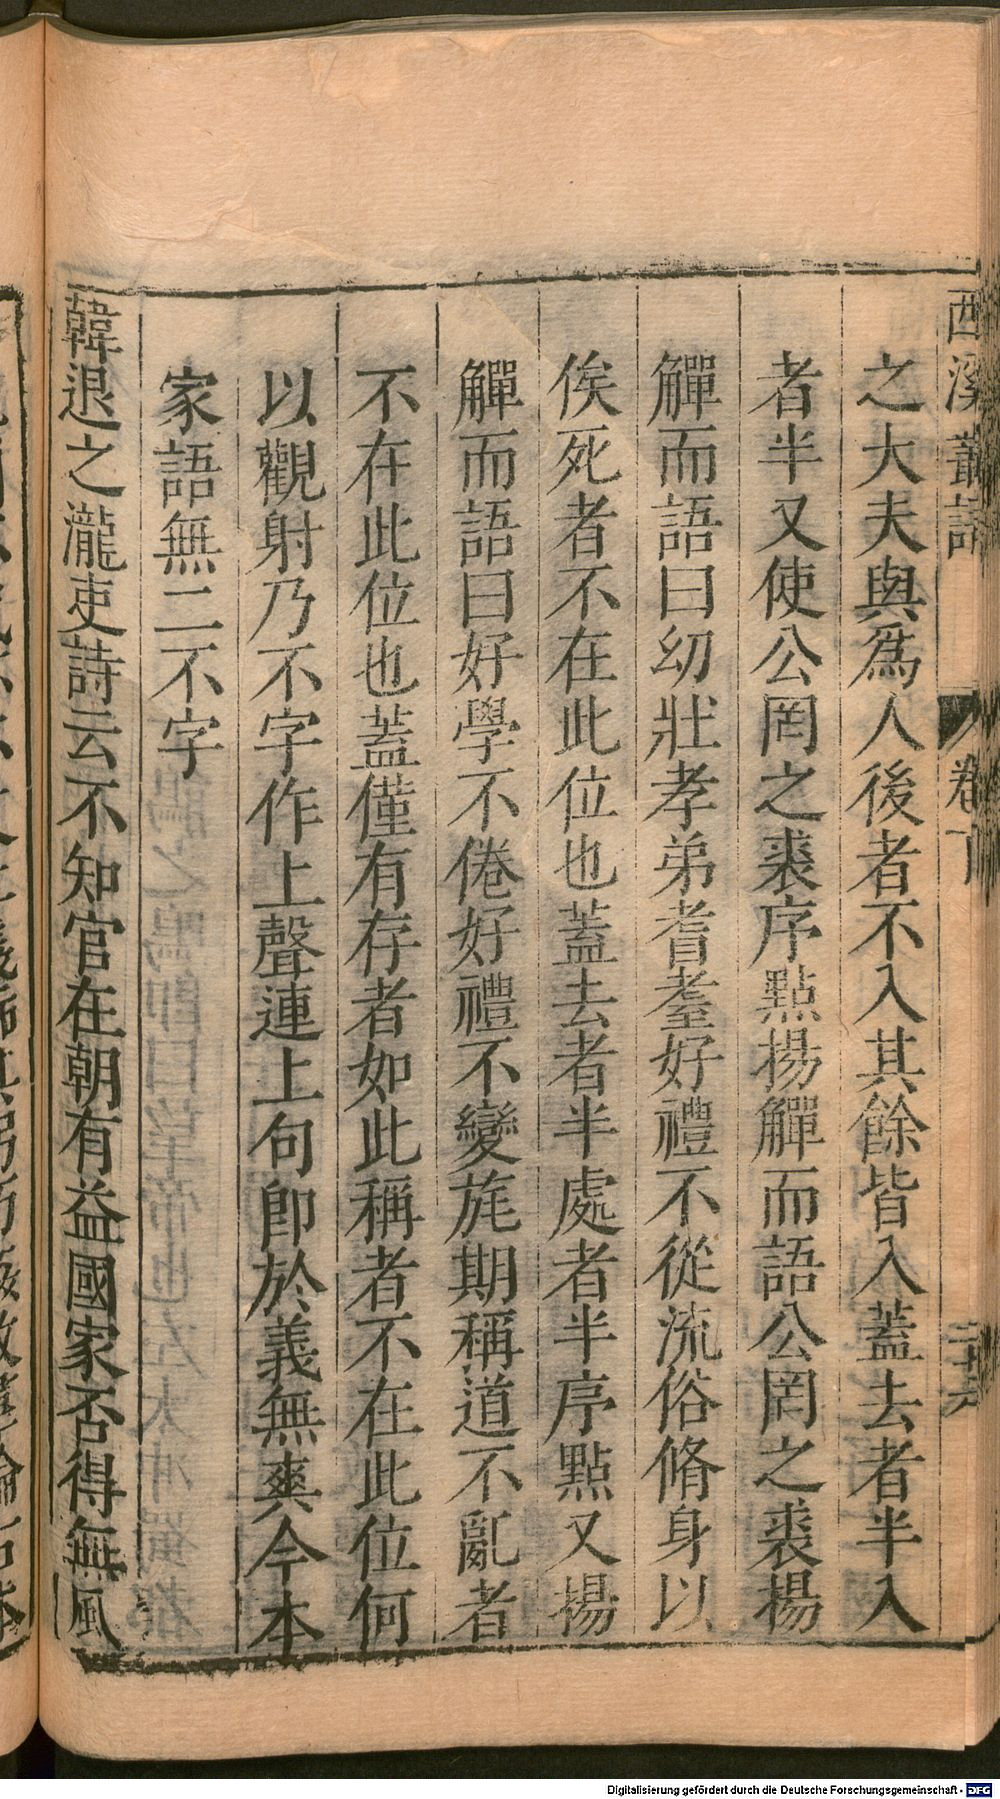 西溪叢語 卷下 二十六
之大夫與爲人後者不入其餘皆入蓋去者半入
者半又使公罔之裘序點揚觶而語公罔之裘揚
觶而語曰幼壯孝弟耆耋好禮不從流俗脩身以
俟死者不在此位也蓋去者半處者半序點又揚
觶而語曰好學不倦好禮不變旄期稱道不亂者
不在此位也蓋僅有存者如此稱者不在此位何
以觀射乃不字作上聲連上句卽於義無爽今本
家語無二不字
韓退之瀧吏詩云不知官在朝有益國家否得無風
Digitalisierung gefördert durch die Deutsche Forschungsgemeinschaft - DFG